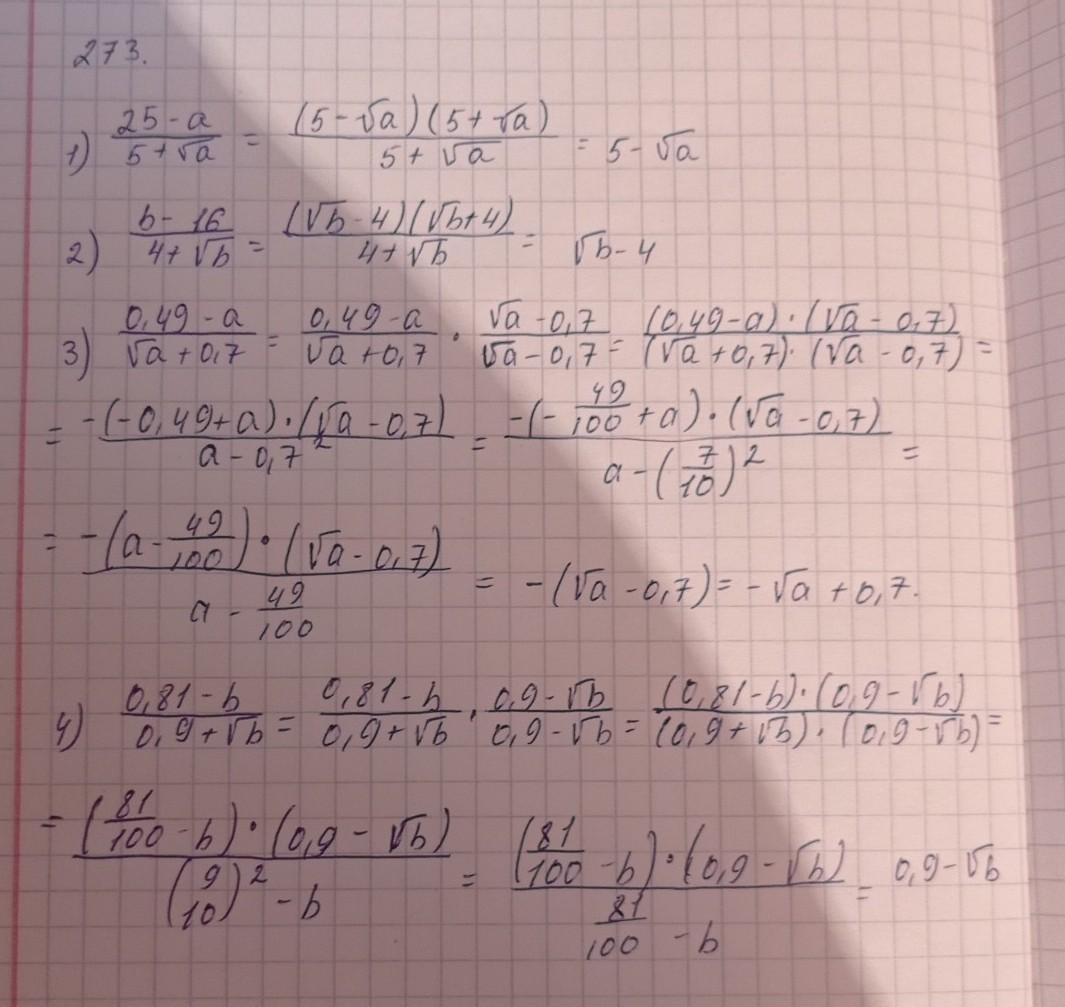 273.
1) (25-a)/(5+√a) = ((5-√a)(5+√a))/(5+√a) = 5-√a
2) (b-16)/(4+√b) = ((√b-4)(√b+4))/(4+√b) = √b-4
3) (0,49-a)/(√a+0,7) = (0,49-a)/(√a+0,7) · (√a-0,7)/(√a-0,7) = ((0,49-a)·(√a-0,7))/((√a+0,7)·(√a-0,7)) =
= (-(-0,49+a)·(√a-0,7))/(a-0,7²) = (-(-49/100+a)·(√a-0,7))/(a-(7/10)²) =
= (-(a-49/100)·(√a-0,7))/(a-49/100) = -(√a-0,7) = -√a+0,7.
4) (0,81-b)/(0,9+√b) = (0,81-b)/(0,9+√b) · (0,9-√b)/(0,9-√b) = ((0,81-b)·(0,9-√b))/((0,9+√b)·(0,9-√b)) =
= ((81/100-b)·(0,9-√b))/((9/10)²-b) = ((81/100-b)·(0,9-√b))/(81/100-b) = 0,9-√b